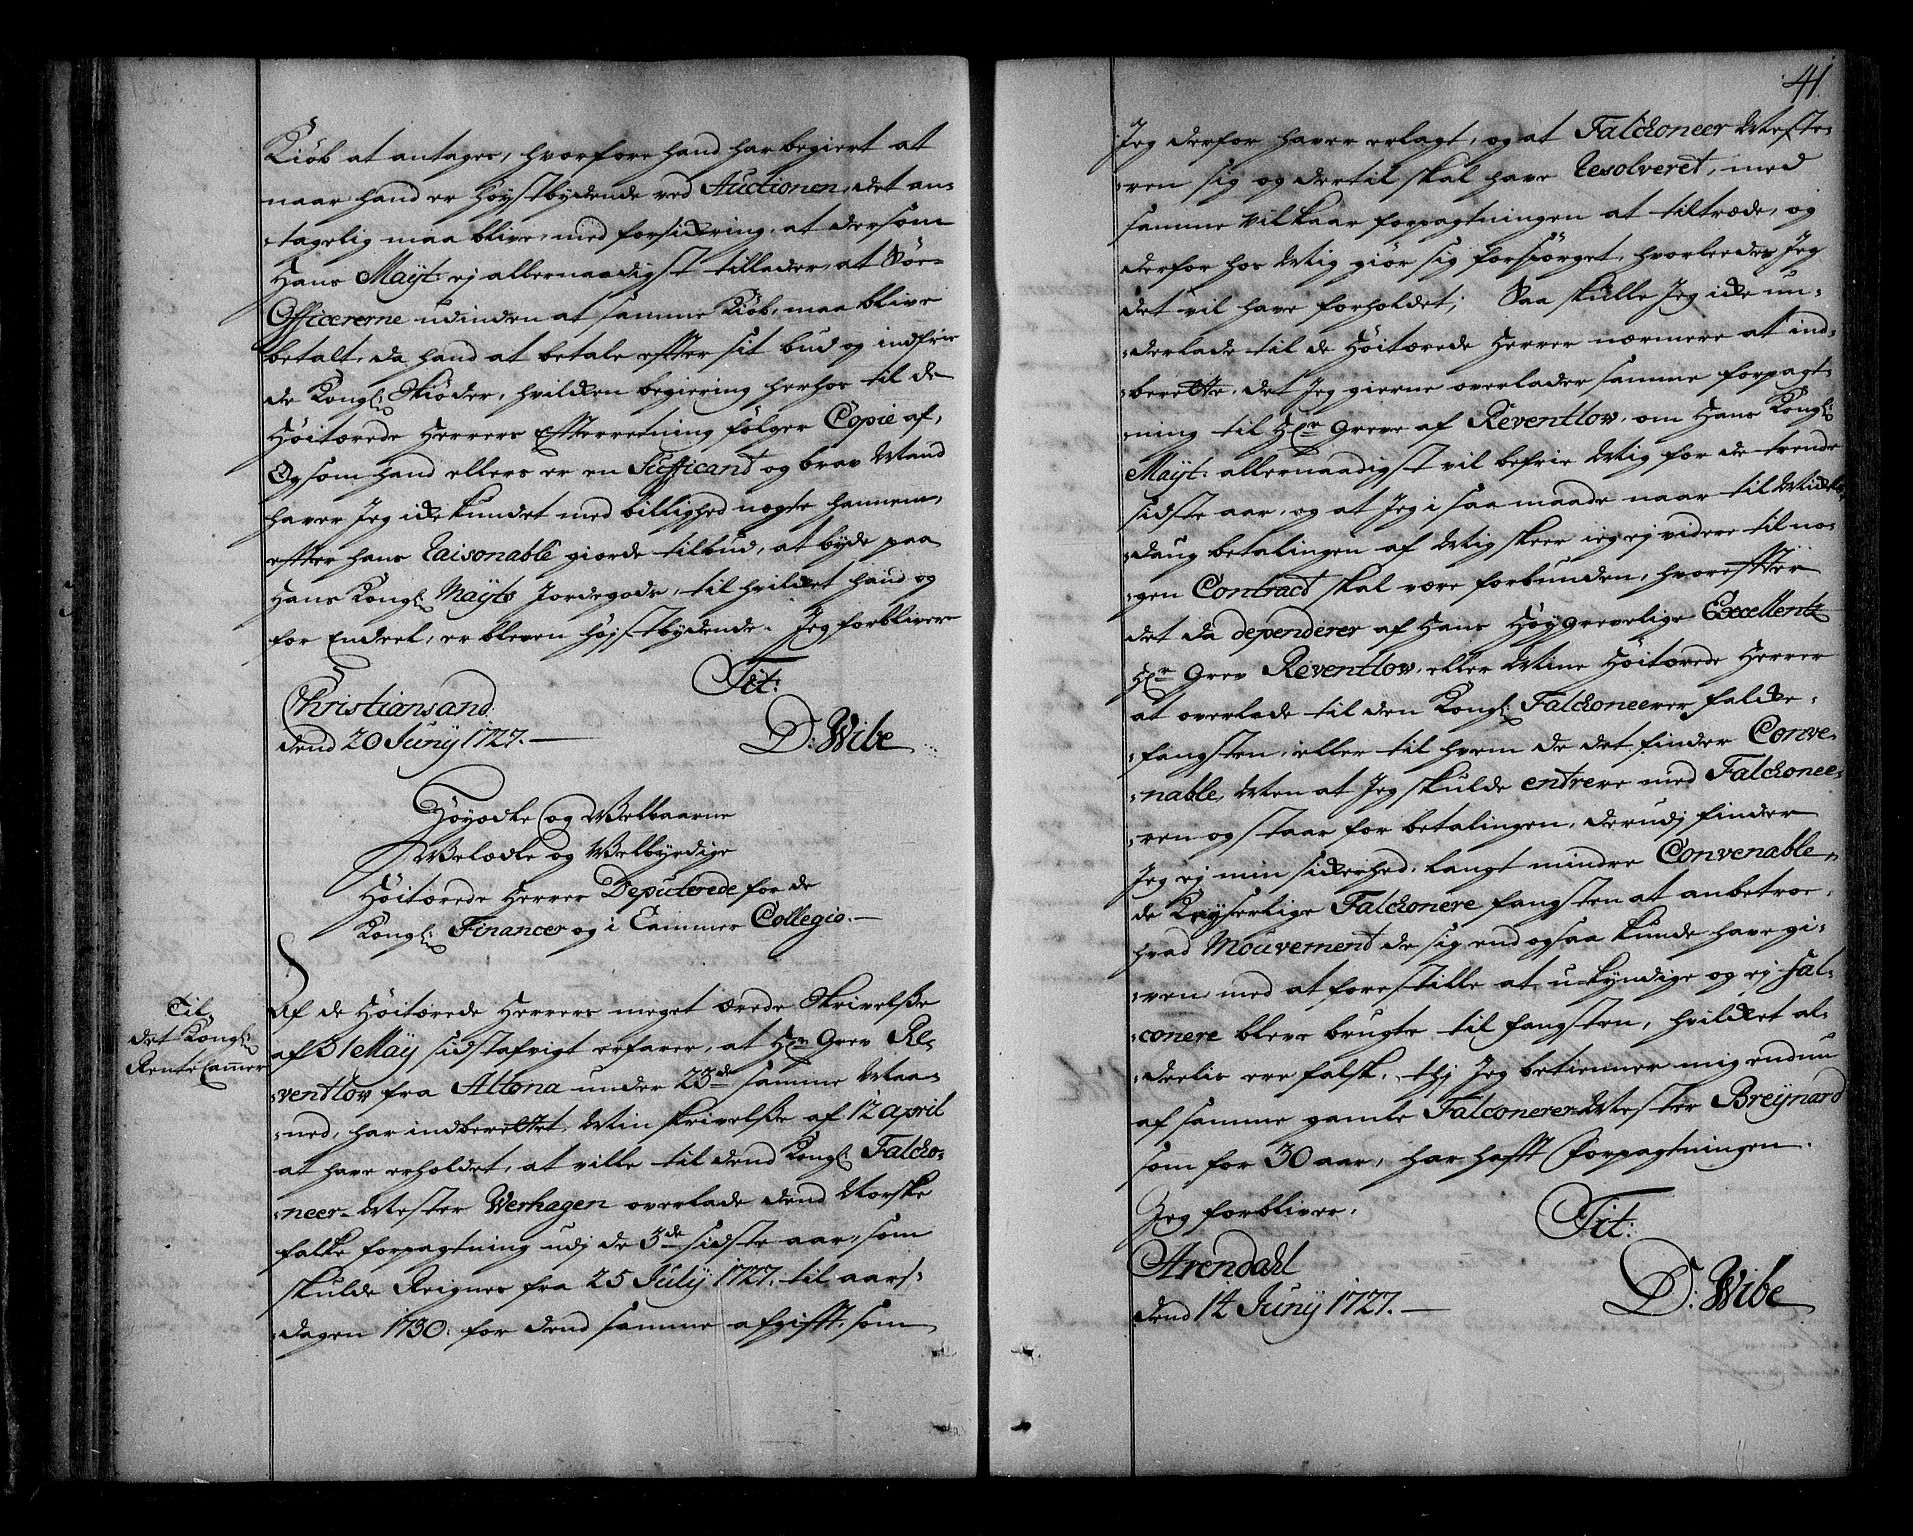 Kiöb at antages, hvorfore hand har begiert at
naar hand er Høystbydende ved Auctionen, det an-
tagelig maa blive, med forsickring, at dersom
Hans Mayt: ej allernaadigst tillader, at Søe-
Officererne udinden at samme Kiöb, maa blive
betalt, da hand at betale effter sit bud og indfrie
de Kongl: Skiøder, hvilcken begiering herhos til de
Høitærede Herrers Effterretning følger Copie af,
Og som hand ellers er en Sufficand og brav Mand
haver Jeg icke kundet med billighed nægte hannem,
effter hans Raisonable giorde tilbud, at byde paa
Hans Kongl: Mayts Jordegods, til hvilcket hand og
for Endeel, er bleven højstbydende. Jeg forbliver
Tit:
Christiansand
dend 20 Junij 1727.
D: Wibe
Høyædle og Welbaarne
Welædle og Welbyrdige
Høitærede Herrer Deputerede for de
Kongl: Financer og i Cammer Collegio.
Til
det Kongl:
Rente Cammer
Af de Høitærede Herrers meget ærede Skrivelse
af 31 Maÿ sidstafvigt erfarer, at Hr Grev Re-
ventlow fra Altona under 23de samme Maa-
ned, har indberettet, Min skrivelse af 12 april
at have erholdet, at ville til dend Kongl: Falcko-
neer-Mester Verhagen overlade dend Norske
falke forpagtning udj de 3de sidste aar, som
skulde Reignes fra 25 Julÿ 1727. til aars-
dagen 1730: for dend samme afgifft, som
41.
Jeg derfor haver erlagt, og at Falckoneer Meste-
ren sig og dertil skal have Resolveret, med
samme vilkaar forpagtningen at tiltræde, og
derfor hos Mig giør sig forspörget, hvorleedes Jeg
det vil have forholdet; Saa skulle Jeg icke un-
derlade til de Høitærede Herrer nærmere at ind-
berette, det Jeg gierne overlader samme forpagt-
ning til Hr Greve af Reventlow, om Hans Kongl:
Mayt: allernaadigst vil befrie Mig for de trende
sidste aar, og at Jeg i saa maade naar til Mickels
daug betalingen af Mig skeer ieg ej videre til no-
gen Contract skal være forbunden, hvoreffter
det da dependerer af Hans Høygrevelige Excellentz
Hr Grev Reventlow, eller Mine Høitærede Herrer
at overlade til den Kongl: Falckoneerer falcke-
fangsten, eller til hvem de det finder Conve-
nable, Men at Jeg skulde entrere med Falckonee-
ren og staar for betalingen, derudj finder
Jeg ej min sickerhed. Langt mindre Convenable,
de Kayserlige Falckonere fangsten at anbetroe
hvad Mouvement de sig end ogsaa kunde have gi-
ven med at forestille at u-kyndige og ej Fal-
conere bleve brugte til fangsten, hvilcket al-
deelis ere falsk, thj Jeg betienner mig endnu
af samme gamle Falconerer Mester Breynard
som for 30 aar, har hafft Forpagtningen.
Jeg forbliver.
Tit:
Arendahl
dend 14 Junij 1727.
D: Wibe